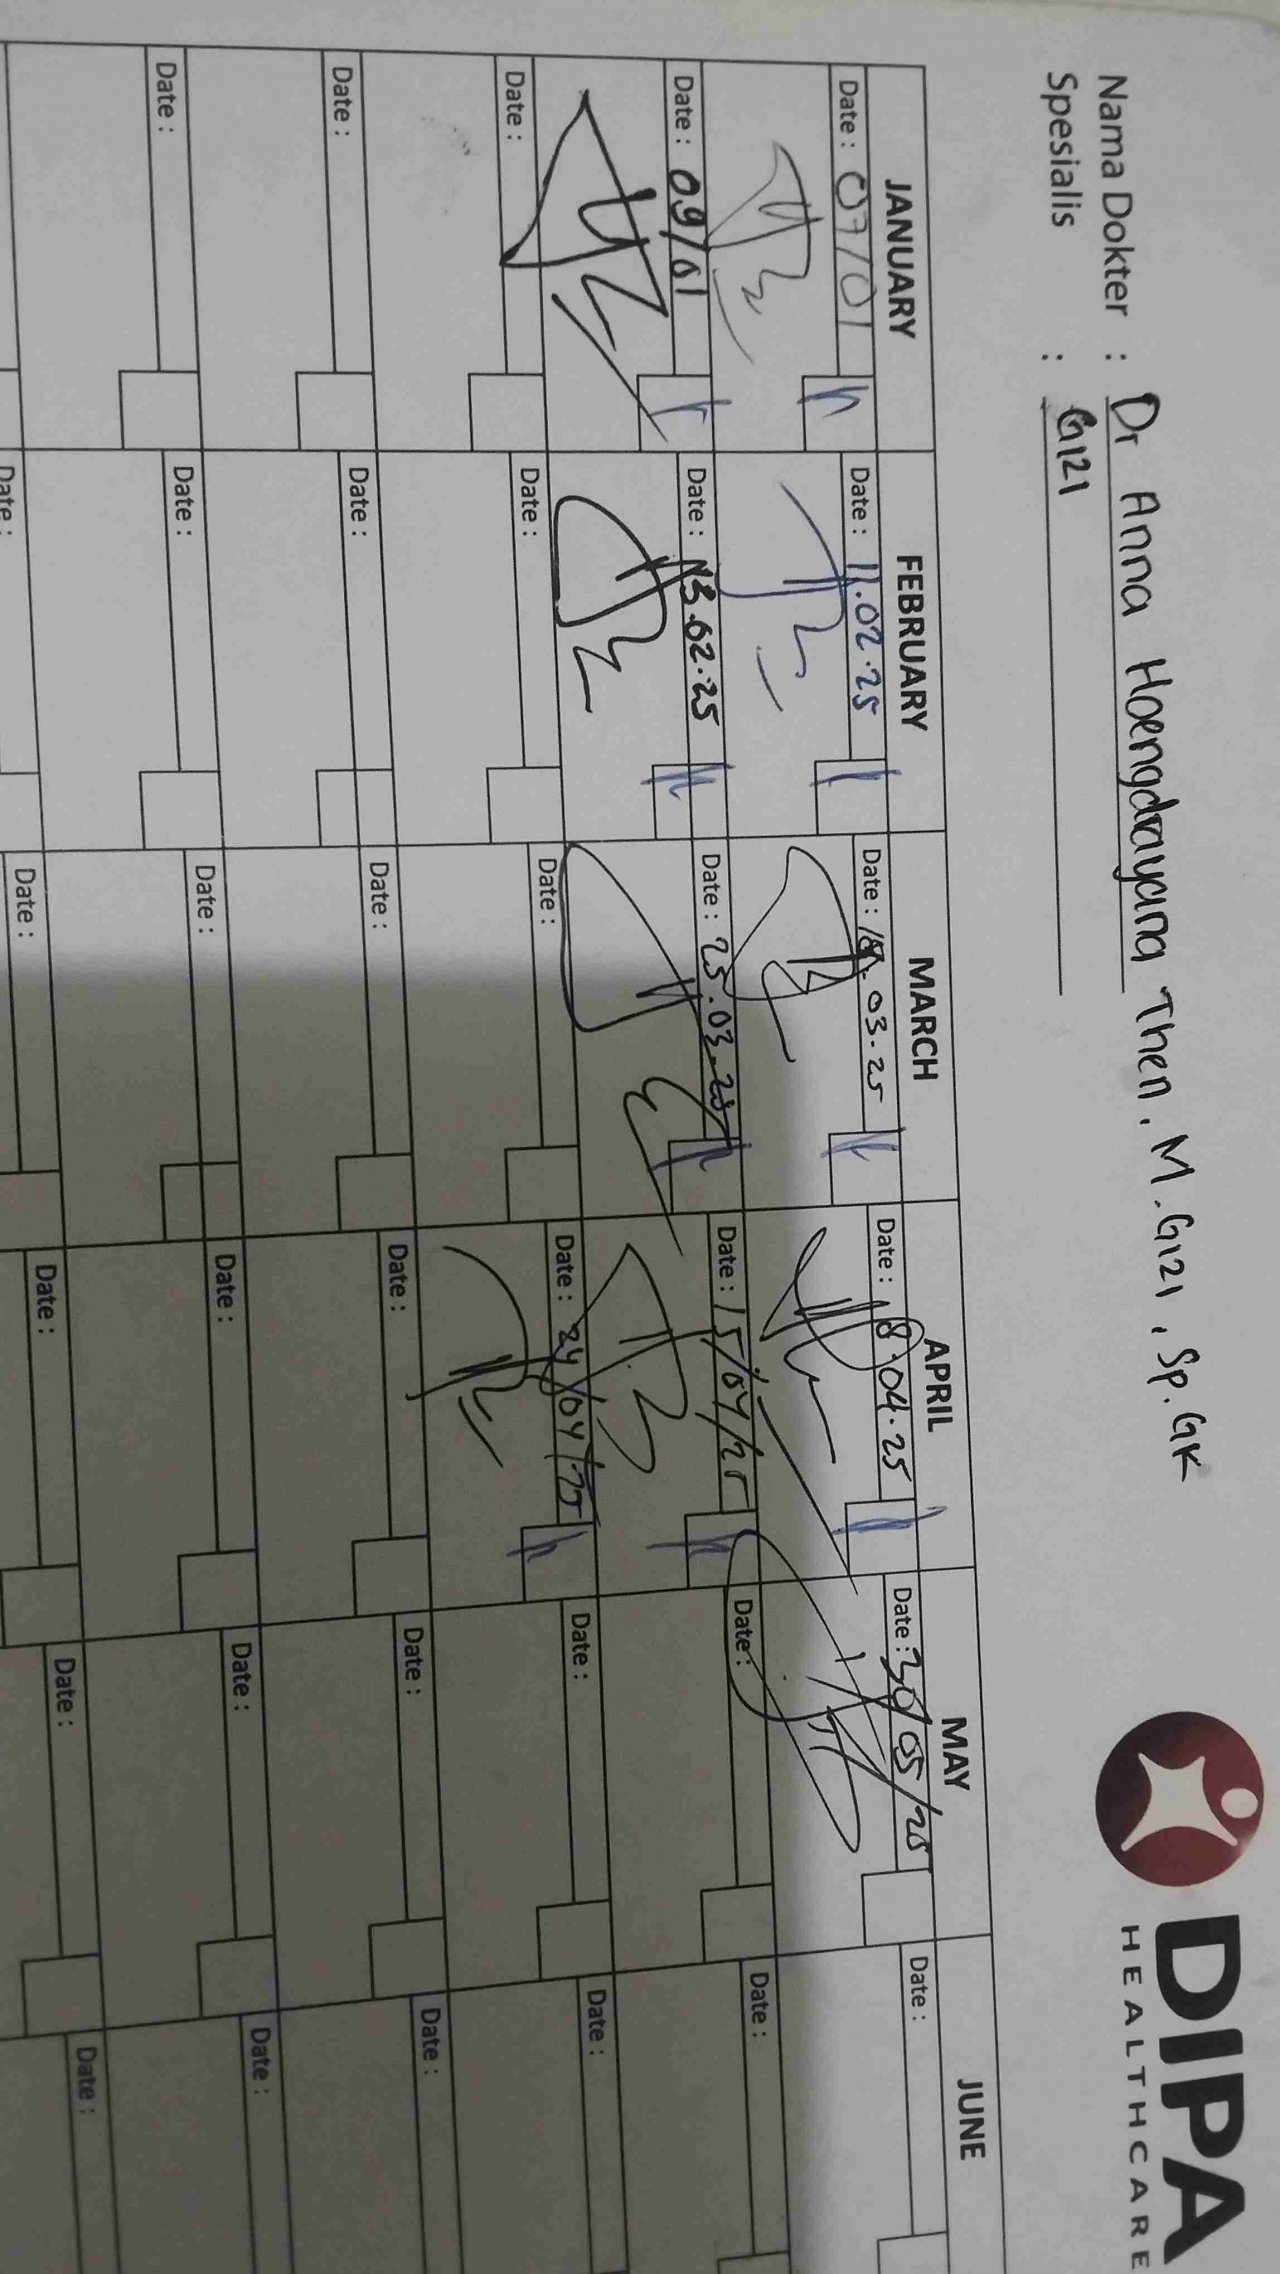 DIPA
HEALTHCARE
Nama Dokter : Dr Anna Hoengdrayana Then. M.Gizi, Sp.GK
Spesialis : Gizi
JANUARY FEBRUARY MARCH APRIL MAY JUNE
Date : 07/01 Date : 11.02.25 Date : 03.25 Date : 8.04.25 Date : 30/05/25 Date :
Date : 09/01 Date : 13.02.25 Date : 25.03.25 Date : 15/04/25 Date : Date :
Date : Date : Date : Date : 24/04/25 Date : Date :
Date : Date : Date : Date : Date : Date :
Date : Date : Date : Date : Date : Date :
Date : Date : Date : Date : Date :